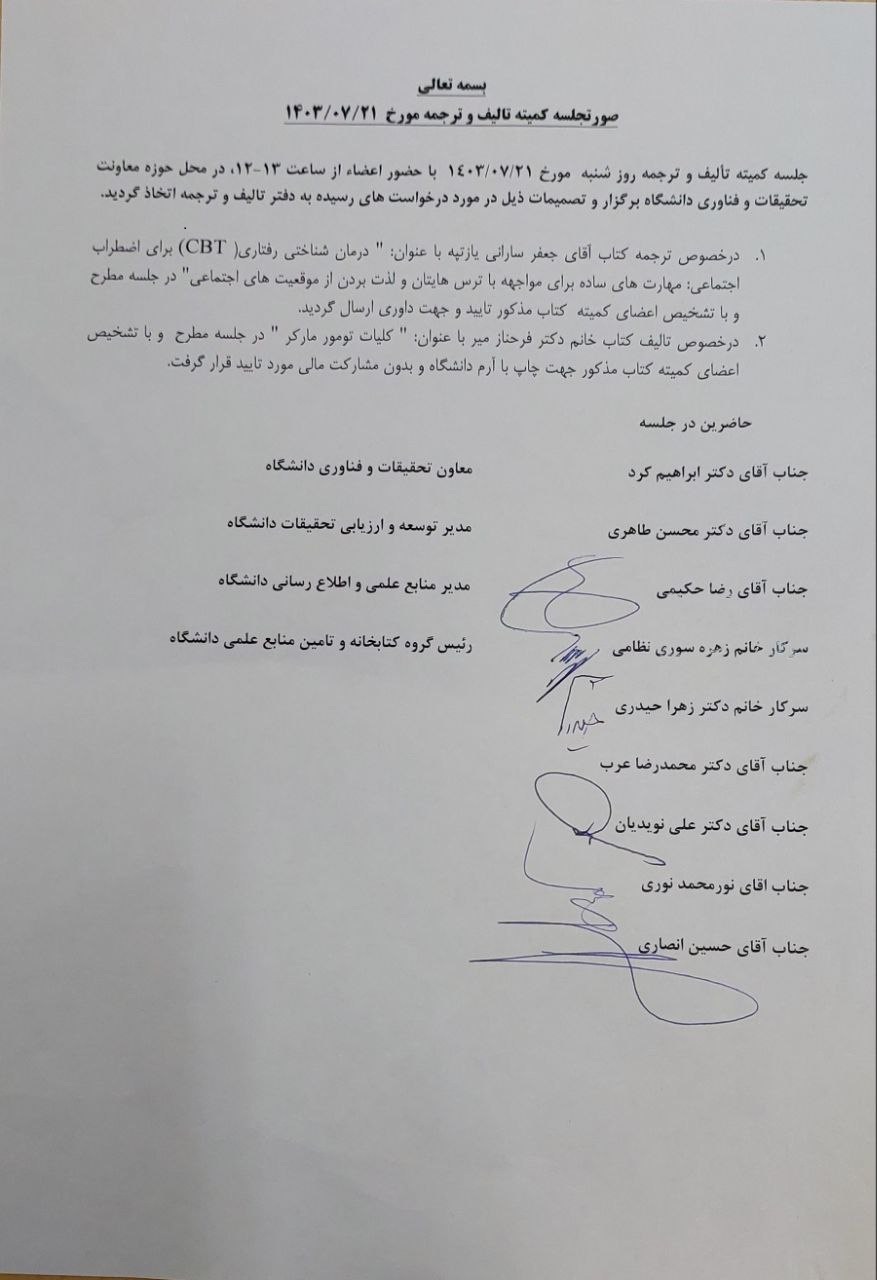 بسمه تعالی
صورتجلسه کمیته تالیف و ترجمه مورخ ۱۴۰۳/۰۷/۲۱
جلسه کمیته تألیف و ترجمه روز شنبه مورخ ۱٤۰۳/۰۷/۲۱ با حضور اعضاء از ساعت ۱۳-۱۲، در محل حوزه معاونت
تحقیقات و فناوری دانشگاه برگزار و تصمیمات ذیل در مورد درخواست های رسیده به دفتر تالیف و ترجمه اتخاذ گردید.
۱. درخصوص ترجمه کتاب آقای جعفر سارانی یازتپه با عنوان: " درمان شناختی رفتاری( CBT) برای اضطراب
اجتماعی: مهارت های ساده برای مواجهه با ترس هایتان و لذت بردن از موقعیت های اجتماعی" در جلسه مطرح
و با تشخیص اعضای کمیته کتاب مذکور تایید و جهت داوری ارسال گردید.
۲. درخصوص تالیف کتاب خانم دکتر فرحناز میر با عنوان: " کلیات تومور مارکر " در جلسه مطرح و با تشخیص
اعضای کمیته کتاب مذکور جهت چاپ با آرم دانشگاه و بدون مشارکت مالی مورد تایید قرار گرفت.
حاضرین در جلسه
جناب آقای دکتر ابراهیم کرد معاون تحقیقات و فناوری دانشگاه
جناب آقای دکتر محسن طاهری مدیر توسعه و ارزیابی تحقیقات دانشگاه
جناب آقای رضا حکیمی مدیر منابع علمی و اطلاع رسانی دانشگاه
سرکار خانم زهره سوری نظامی رئیس گروه کتابخانه و تامین منابع علمی دانشگاه
سرکار خانم دکتر زهرا حیدری
جناب آقای دکتر محمدرضا عرب
جناب آقای دکتر علی نویدیان
جناب اقای نورمحمد نوری
جناب آقای حسین انصاری